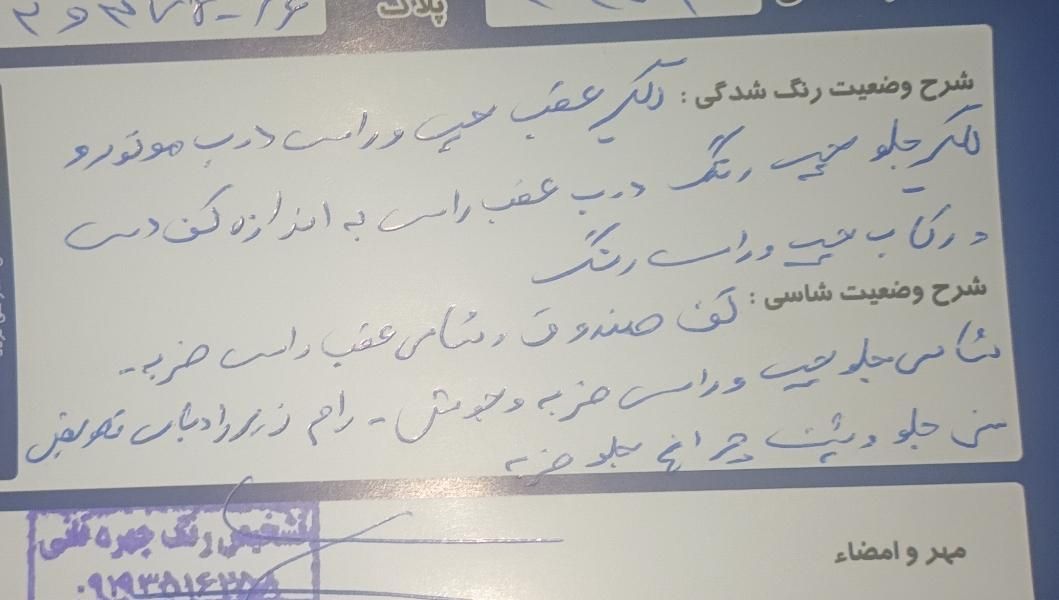 پلاک
شرح وضعیت رنگ شدگی : گلگیر عقب چپ و راست درب موتور و
گلگیر جلو چپ رنگ درب عقب راست به اندازه کف دست
و رکاب چپ و راست رنگ
شرح وضعیت شاسی : کف صندوق و شاسی عقب راست ضربه -
شاسی جلو چپ و راست ضربه و جوش - رام زیر رادیاتور تعویض
سینی جلو و پشت چراغ جلو ضربه
مهر و امضاء
تشخیص رنگ چهره قانی